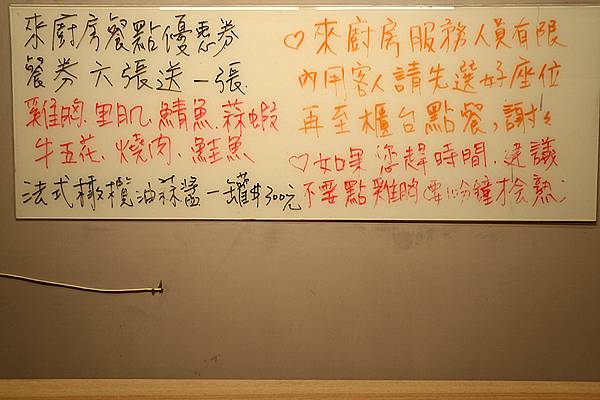 來廚房餐點優惠券
餐券六張送一張
雞胸.里肌.鯖魚.蒜蝦
牛五花.燒肉.鮭魚
法式橄欖油蒜醬一罐$300元
♡來廚房服務人員有限
內用客人請先選好座位
再至櫃台點餐,謝謝
♡如果您趕時間.建議
不要點雞胸要分鐘才会熟